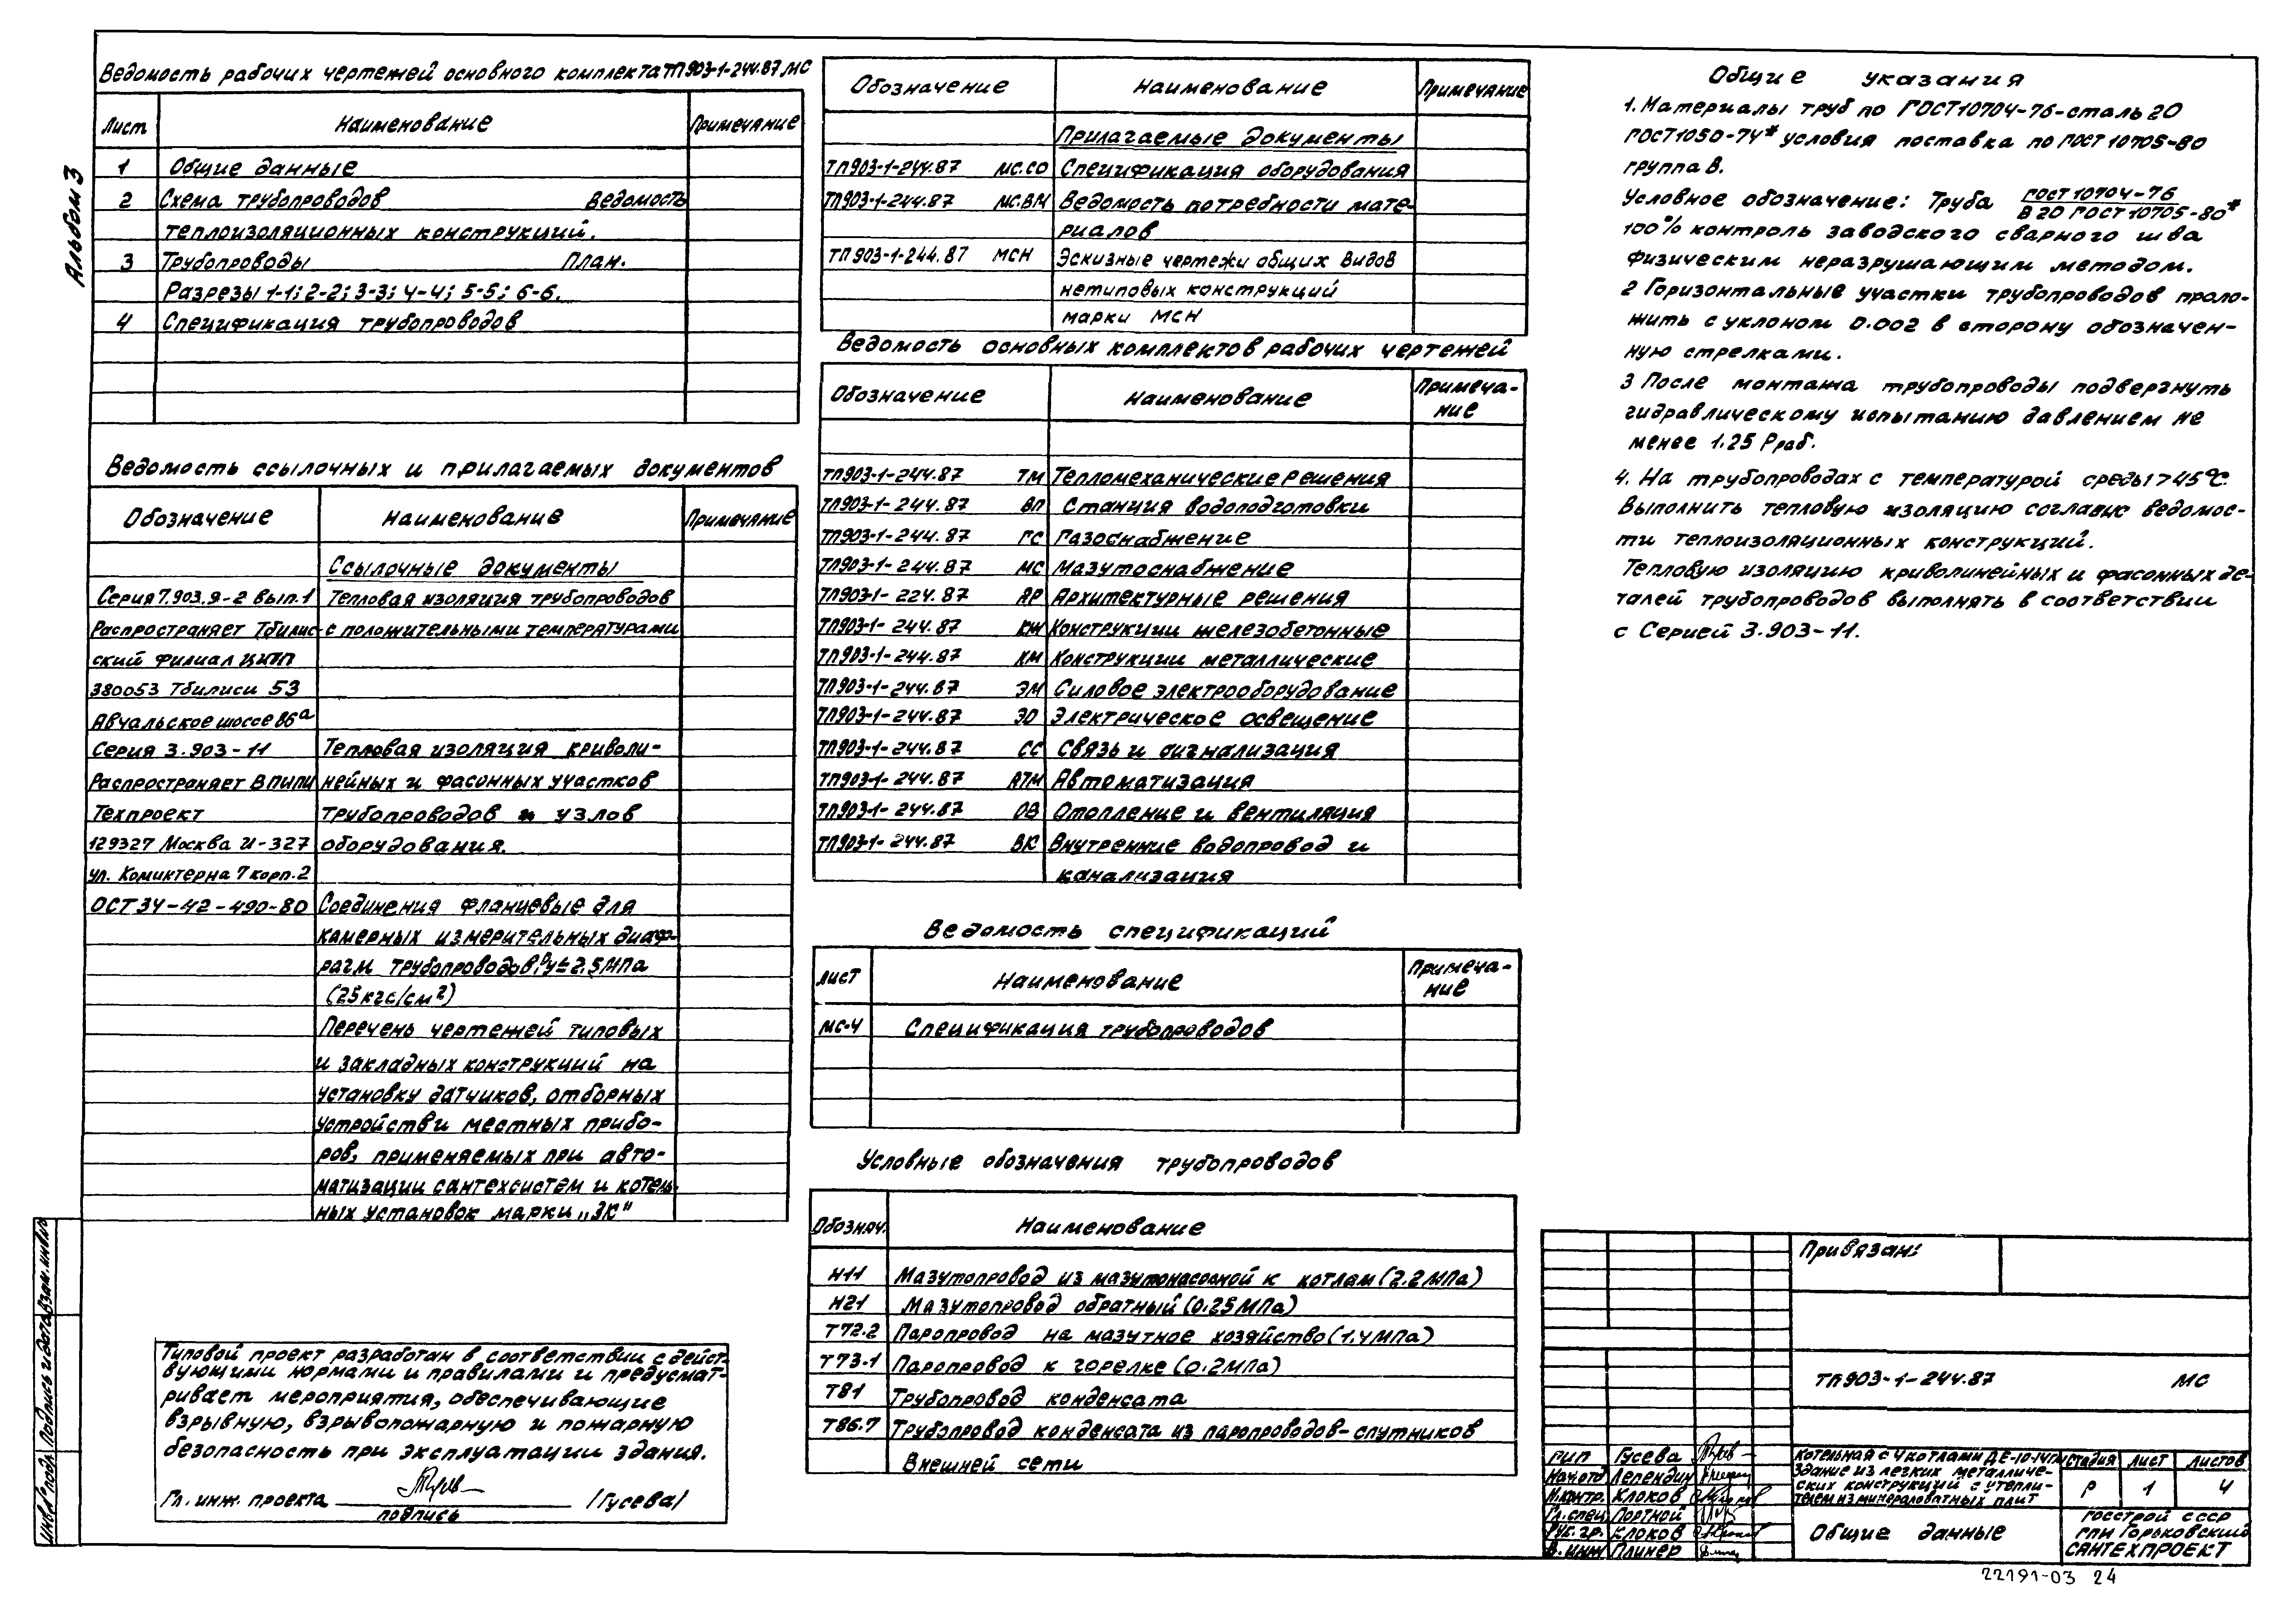 Альбом 3
Ведомость рабочих чертежей основного комплекта ТП903-1-244.87 МС
Лист Наименование Примечание
1 Общие данные
2 Схема трубопроводов Ведомость
теплоизоляционных конструкций.
3 Трубопроводы План.
Разрезы 1-1; 2-2; 3-3; 4-4; 5-5; 6-6.
4 Спецификация трубопроводов
Ведомость ссылочных и прилагаемых документов
Обозначение Наименование Примечание
Ссылочные документы
Серия 7.903.9-2 вып.1 Тепловая изоляция трубопроводов
Распространяет Тбилис- с положительными температурами
ский филиал ЦИТП
380053 Тбилиси 53
Авчальское шоссе 86а
Серия 3.903-11 Тепловая изоляция криволи-
Распространяет ВПИПИ нейных и фасонных участков
Техпроект трубопроводов и узлов
129327 Москва И-327 оборудования.
ул. Коминтерна 7 корп.2
ОСТ34-42-490-80 Соединения фланцевые для
камерных измерительных диаф-
рагм трубопроводов Ру≤2.5МПа
(25кгс/см²)
Перечень чертежей типовых
и закладных конструкций на
установку датчиков, отборных
устройств и местных прибо-
ров, применяемых при авто-
матизации сантехсистем и котель-
ных установок марки „ЗК"
Типовой проект разработан в соответствии с дейст-
вующими нормами и правилами и предусмат-
ривает мероприятия, обеспечивающие
взрывную, взрывопожарную и пожарную
безопасность при эксплуатации здания.
Гл. инж. проекта /Гусева/
подпись
Инв.№ подл. Подпись и дата Взам.инв.№
Обозначение Наименование Примечание
Прилагаемые документы
ТП903-1-244.87 МС.СО Спецификация оборудования
ТП903-1-244.87 МС.ВМ Ведомость потребности мате-
риалов
ТП903-1-244.87 МСН Эскизные чертежи общих видов
нетиповых конструкций
марки МСН
Ведомость основных комплектов рабочих чертежей
Обозначение Наименование Примеча-
ние
ТП903-1-244.87 ТМ Тепломеханические решения
ТП903-1-244.87 ВП Станция водоподготовки
ТП903-1-244.87 ГС Газоснабжение
ТП903-1-244.87 МС Мазутоснабжение
ТП903-1-224.87 АР Архитектурные решения
ТП903-1-244.87 КЖ Конструкции железобетонные
ТП903-1-244.87 КМ Конструкции металлические
ТП903-1-244.87 ЭМ Силовое электрооборудование
ТП903-1-244.87 ЭО Электрическое освещение
ТП903-1-244.87 СС Связь и сигнализация
ТП903-1-244.87 АТМ Автоматизация
ТП903-1-244.87 ОВ Отопление и вентиляция
ТП903-1-244.87 ВК Внутренние водопровод и
канализация
Ведомость спецификаций
Лист Наименование Примеча-
ние
МС-4 Спецификация трубопроводов
Условные обозначения трубопроводов
Обознач. Наименование
Н11 Мазутопровод из мазутонасосной к котлам (2.2МПа)
Н21 Мазутопровод обратный (0.25МПа)
Т72.2 Паропровод на мазутное хозяйство (1.4МПа)
Т73.1 Паропровод к горелке (0.2МПа)
Т81 Трубопровод конденсата
Т86.7 Трубопровод конденсата из паропроводов-спутников
Внешней сети
Общие указания
1. Материалы труб по ГОСТ10704-76-сталь 20
ГОСТ1050-74* условия поставка по ГОСТ 10705-80
группа В.
Условное обозначение: Труба ГОСТ 10704-76
В 20 ГОСТ 10705-80*
100% контроль заводского сварного шва
физическим неразрушающим методом.
2 Горизонтальные участки трубопроводов проло-
жить с уклоном 0.002 в сторону обозначен-
ную стрелками.
3 После монтажа трубопроводы подвергнуть
гидравлическому испытанию давлением не
менее 1.25 Рраб.
4. На трубопроводах с температурой среды >45°С
выполнить тепловую изоляцию согласно ведомос-
ти теплоизоляционных конструкций.
Тепловую изоляцию криволинейных и фасонных де-
талей трубопроводов выполнять в соответствии
с Серией 3.903-11.
Привязан:
ТП903-1-244.87 МС
ГИП Гусева
Нач.отд Лепендин
Н.контр. Клоков
Гл.спец Портной
Рук.гр. Клоков
В.инж Плинер
Котельная с 4 котлами ДЕ-10-14ГМ
Здание из легких металличе-
ских конструкций с утепли-
телем из минераловатных плит
Стадия Лист Листов
Р 1 4
Общие данные
Госстрой СССР
ГПИ Горьковский
САНТЕХПРОЕКТ
22191-03 24